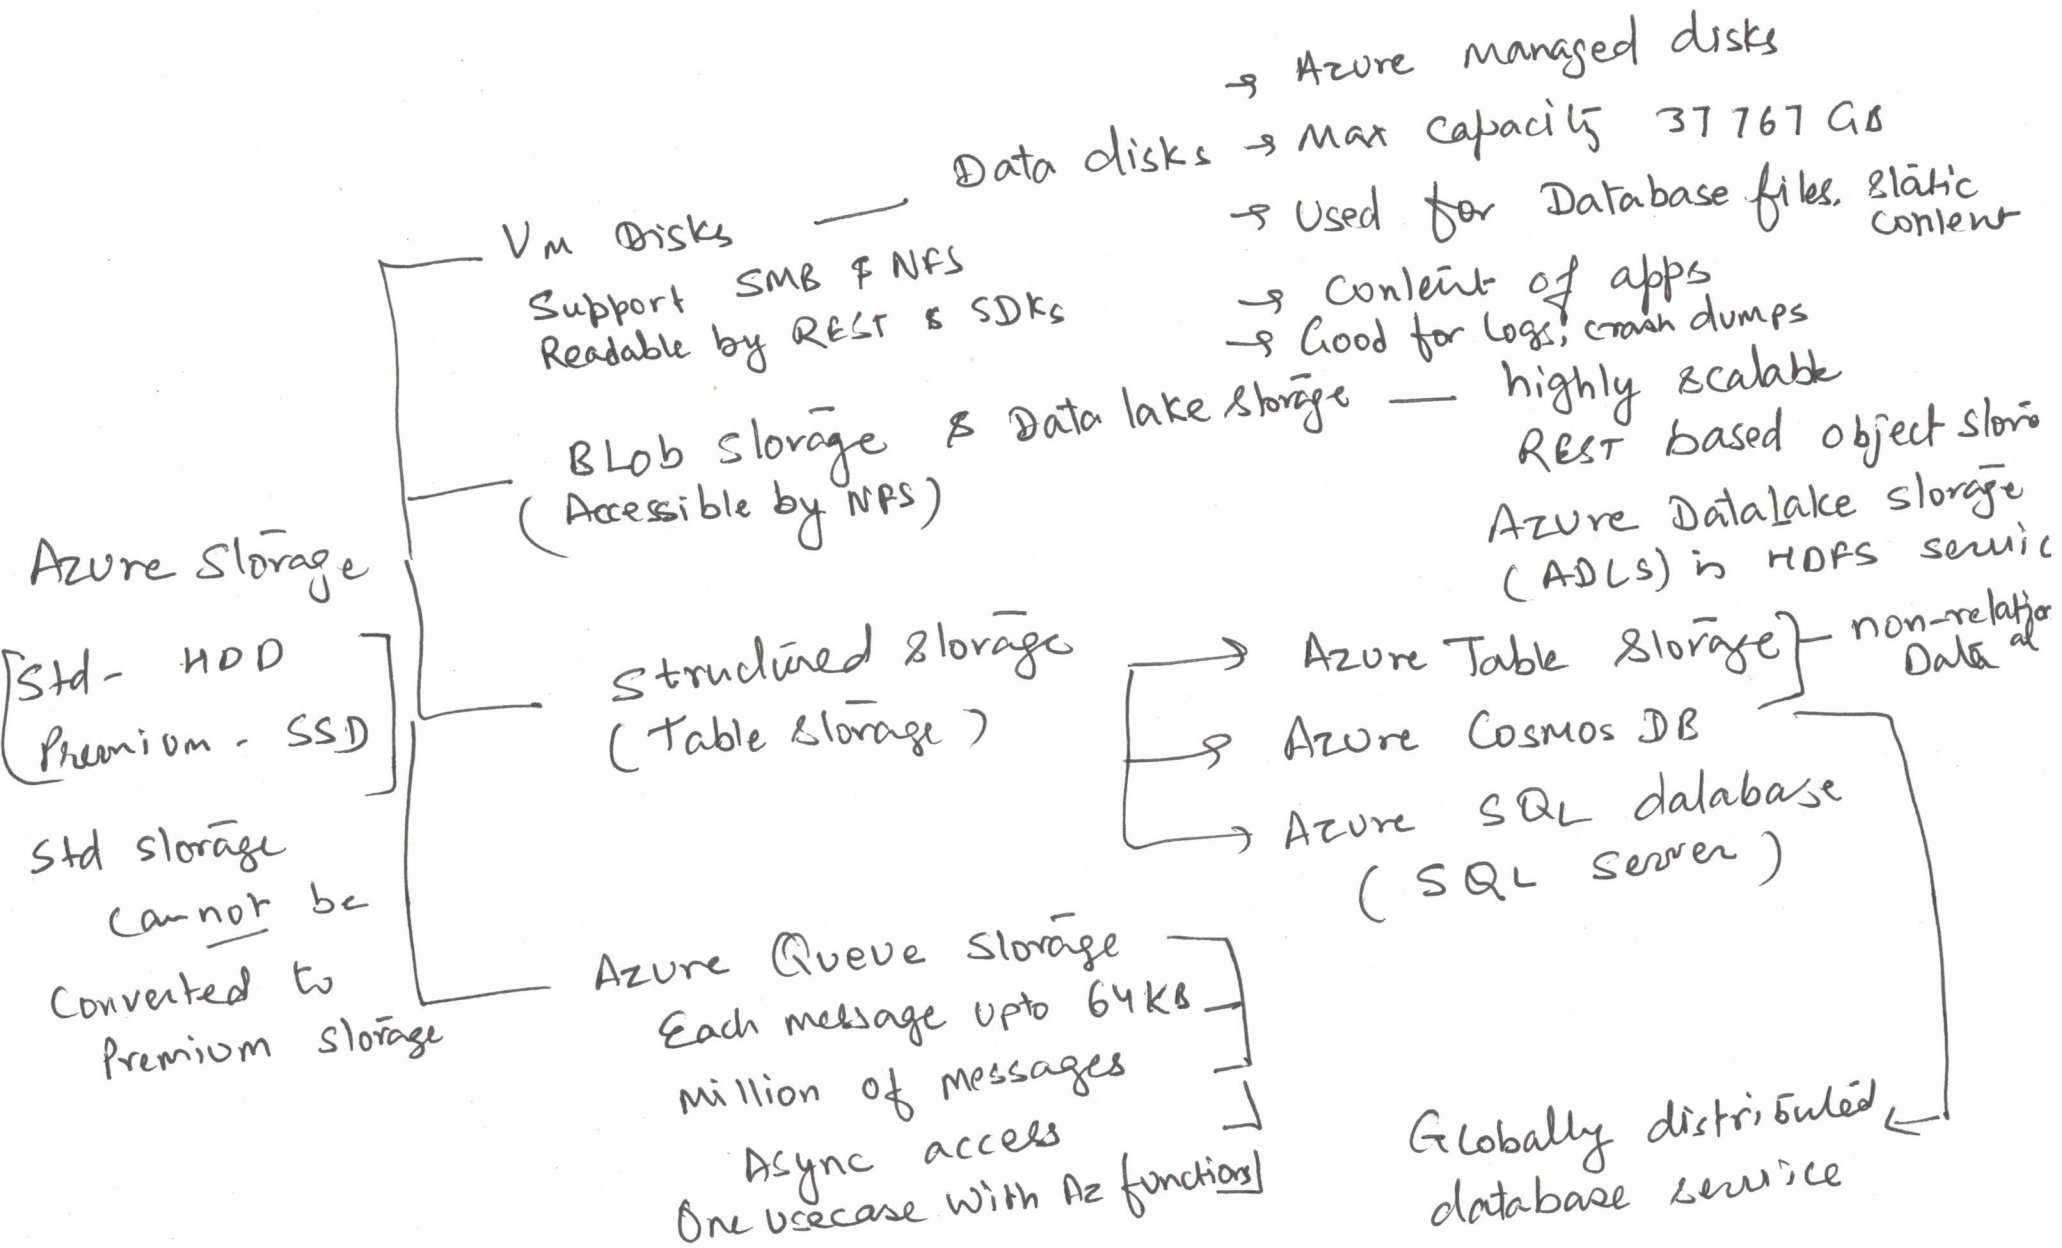 Azure Storage
[Std - HDD
Premium - SSD]
Std storage
cannot be
Converted to
Premium storage
VM Disks
Support SMB & NFS
Readable by REST & SDKs
Data disks
→ Azure managed disks
→ Max capacity 37767 GB
→ Used for Database files, static
content
→ Content of apps
→ Good for logs, crash dumps
BLob storage & Data lake storage
(Accessible by NFS)
highly scalable
REST based object stora
Azure DataLake storage
(ADLS) is HDFS servic
Structured storage
(Table storage)
→ Azure Table Storage
non-relation
al
Data
→ Azure Cosmos DB
→ Azure SQL database
(SQL server)
Globally distributed
database service
Azure Queue Storage
Each message upto 64KB
Million of messages
Async access
One usecase with Az functions